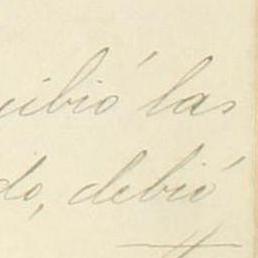 cibió las
do, debió